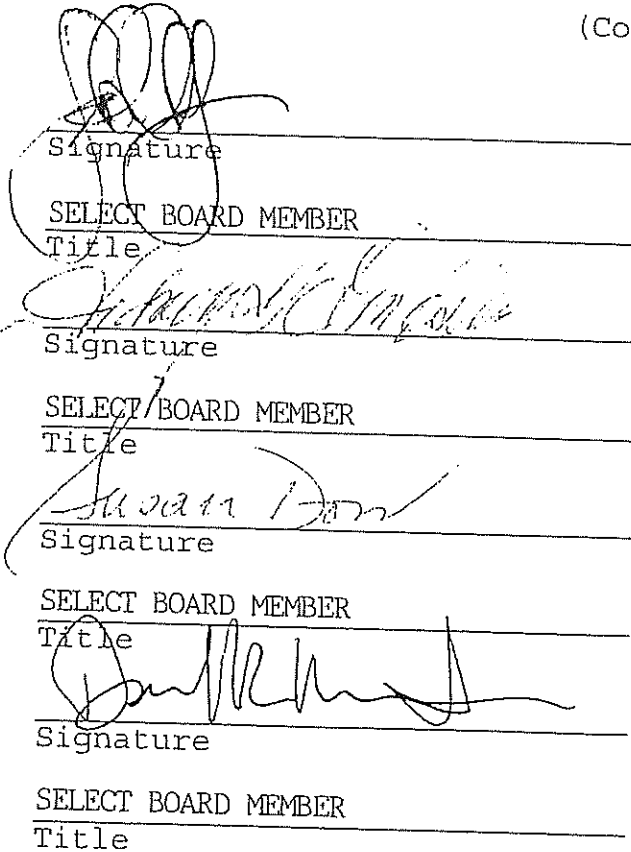 (Co
Signature
SELECT BOARD MEMBER
Title
Signature
SELECT BOARD MEMBER
Title
Susan Dow
Signature
SELECT BOARD MEMBER
Title
Signature
SELECT BOARD MEMBER
Title